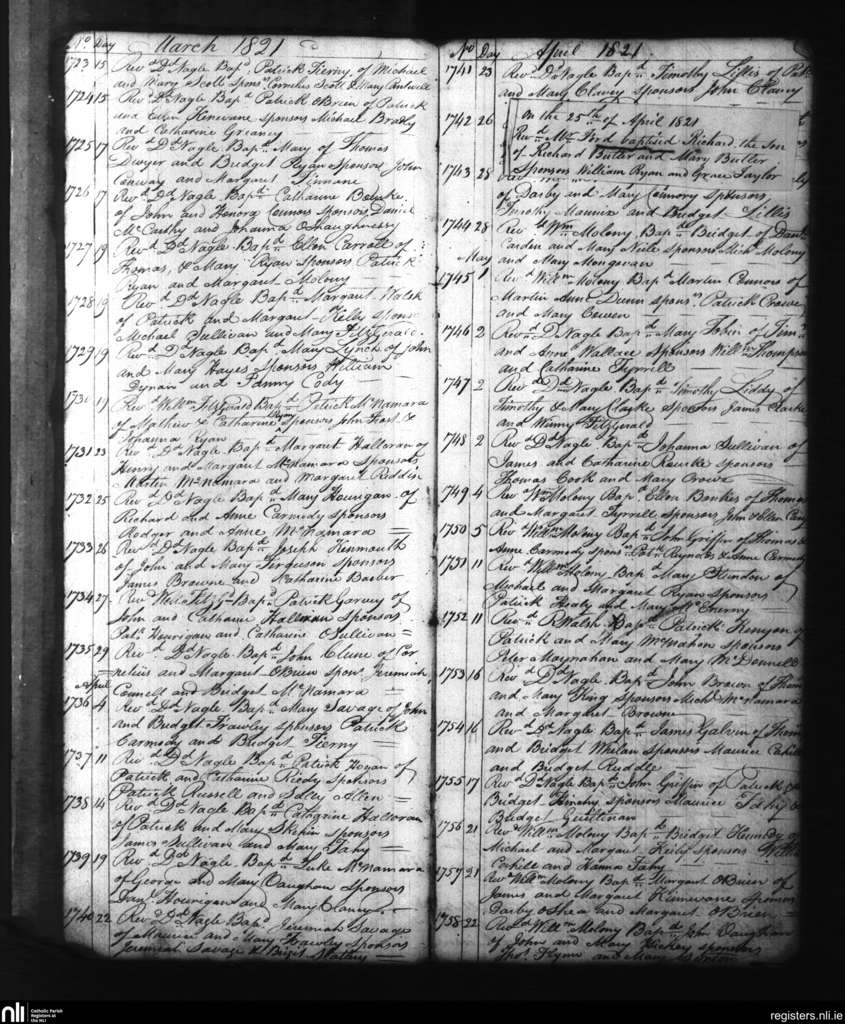 No. Day March 1821
1723 15 Revd Dd Nagle Bapd Patrick Tierny of Michael
and Mary Scott Sponrs Cornelius Scott & Mary Cantwell
1724 15 Revd Dd Nagle Bapd Patrick OBrien of Patrick
and Kinevane sponsors Michael Bradly
and Catharine Greaney
1725 17 Revd Dd Nagle Bapd Mary of Thomas
Dwyer and Bridget Ryan Sponsors John
Conway and Margaret Kinnane
1726 17 Revd Dd Nagle Bapd Catharine
of John and Honora Connors Sponsors Daniel
McCarthy and Johanna OShaughnessy
1727 19 Revd Dd Nagle Bapd Ellen Carroll of
Thomas & Mary Ryan Sponsors Patrick
Ryan and Margaret Molony
1728 19 Revd Dd Nagle Bapd Margaret Walsh
of Patrick and Margaret Kielly Sponsors
Michael Sullivan and Mary Fitzgerald
1729 19 Revd Dd Nagle Bapd Mary Lynch of John
and Mary Hayes Sponsors William
and Fanny Cody
1730 19 Revd Willm Fitzgerald Bapd Patrick McNamara
of Mathew & Catharine Ryan Sponsors John &
Johanna Ryan
1731 23 Revd Dd Nagle Bapd Margaret Halloran of
Henry and Margaret McNamara Sponsors
Martin McNamara and Margaret Reddin
1732 25 Revd Dd Nagle Bapd Mary Hourigan of
Richard and Anne Carmody sponsors
Rodger and Anne McNamara
1733 26 Revd Dd Nagle Bapd Joseph Kenmouth
of John and Mary Ferguson Sponsors
James Browne and Catharine Barber
1734 27 Revd Wm Bapd Patrick Garvey of
John and Catharine Halloran Sponsors
Patk Hourigan and Catharine OSullivan
1735 29 Revd Dd Nagle Bapd John Clune of Cor
nelius and Margaret OBrien sponrs Jeremiah
April Connell and Bridget McNamara
1736 4 Revd Dd Nagle Bapd Mary Savage of John
and Bridget Frawley sponsors Patrick
Carmody and Bridget Tierny
1737 11 Revd Dd Nagle Bapd Patrick Hogan of
Patrick and Catharine Reedy Sponsors
Patrick Russell and Sally Allen
1738 14 Revd Dd Nagle Bapd Catharine Halloran
of Patrick and Mary sponsors
James Sullivan and Mary Fahy
1739 19 Revd Dd Nagle Bapd Luke McNamara
of George and Mary Vaughan Sponsors
Hourigan and Mary
1740 22 Revd Dd Nagle Bapd Jeremiah Savage
of Maurice and Mary Frawley Sponsors
Jeremiah Savage & Bridgt Slattery
No Day April 1821
1741 23 Revd Dd Nagle Bapd Timothy Liffis of Patk
and Mary Clancy sponsors John Clancy
1742 26 On the 25th of April 1821
Revd Mr Fitzd baptised Richard, the Son
of Richard Butler and Mary Butler
Sponsors William Ryan and Grace Taylor
1743 28
of Darby and Mary Connory sponsors
Timothy Maurice and Bridget Liffis
1744 28 Revd Wm Molony Bapd Bridget of Danl
Carden and Mary Neile Sponsors Michl Molony
May and Mary Mongovan
1745 1 Revd Willm Molony Bapd Martin Connors of
Martin Anne Dunn sponrs Patrick Crowe
and Mary Cowen
1746 2 Revd D Nagle Bapd Mary Tobin of
and Anne Wallace Sponsors Willm Thompson
and Catharine Tyrrell
1747 2 Revd Dd Nagle Bapd Timothy Liddy of
Timothy & Mary Clarke Sponsors James Clarke
and Winny Fitzgerald
1748 2 Revd Dd Nagle Bapd Johanna Sullivan of
James and Catharine Rourke sponsors
Thomas Cook and Mary Crowe
1749 4 Revd Wm Molony Bapd Ellen Bonkes of Thomas
and Margaret Tyrrell Sponsors John & Ellen
1750 5 Revd Willm Molony Bapd John Griffin of Thomas &
Anne Carmody Sponrs Patk Reynolds & Anne Carmody
1751 11 Revd Willm Molony Bapd Mary Dundon of
Michael and Margaret Ryan Sponsors
Patrick Healy and Mary McEnerny
1752 11 Revd R Walsh Bapd Patrick Kenyon of
Patrick and Mary McMahon sponsors
Peter Moynahan and Mary McDonnell
1753 16 Revd Dd Nagle Bapd John Brown of Thomas
and Mary King Sponsors Michl McNamara
and Margaret Browne
1754 16 Revd Dd Nagle Bapd James Galvin of Thomas
and Bridget Whelan Sponsors Maurice Cahill
and Bridget Ruddle
1755 17 Revd Dd Nagle Bapd John Griffin of Patrick &
Bridget sponsors Maurice Fahy &
Bridget Guillinan
1756 21 Revd Willm Molony Bapd Bridget Kennedy of
Michael and Margaret Kielly sponsors
Cahill and Hanna Fahy
1757 21 Revd Willm Molony Bapd Margaret OBrien of
James and Margaret Kinnevane sponsors
Darby OShea and Margaret OBrien
1758 22 Revd Willm Molony Bapd John Vaughan
of John and Mary Hickey sponsors
Thos Flynn and Mary
nli Catholic Parish
Registers at
the NLI
registers.nli.ie